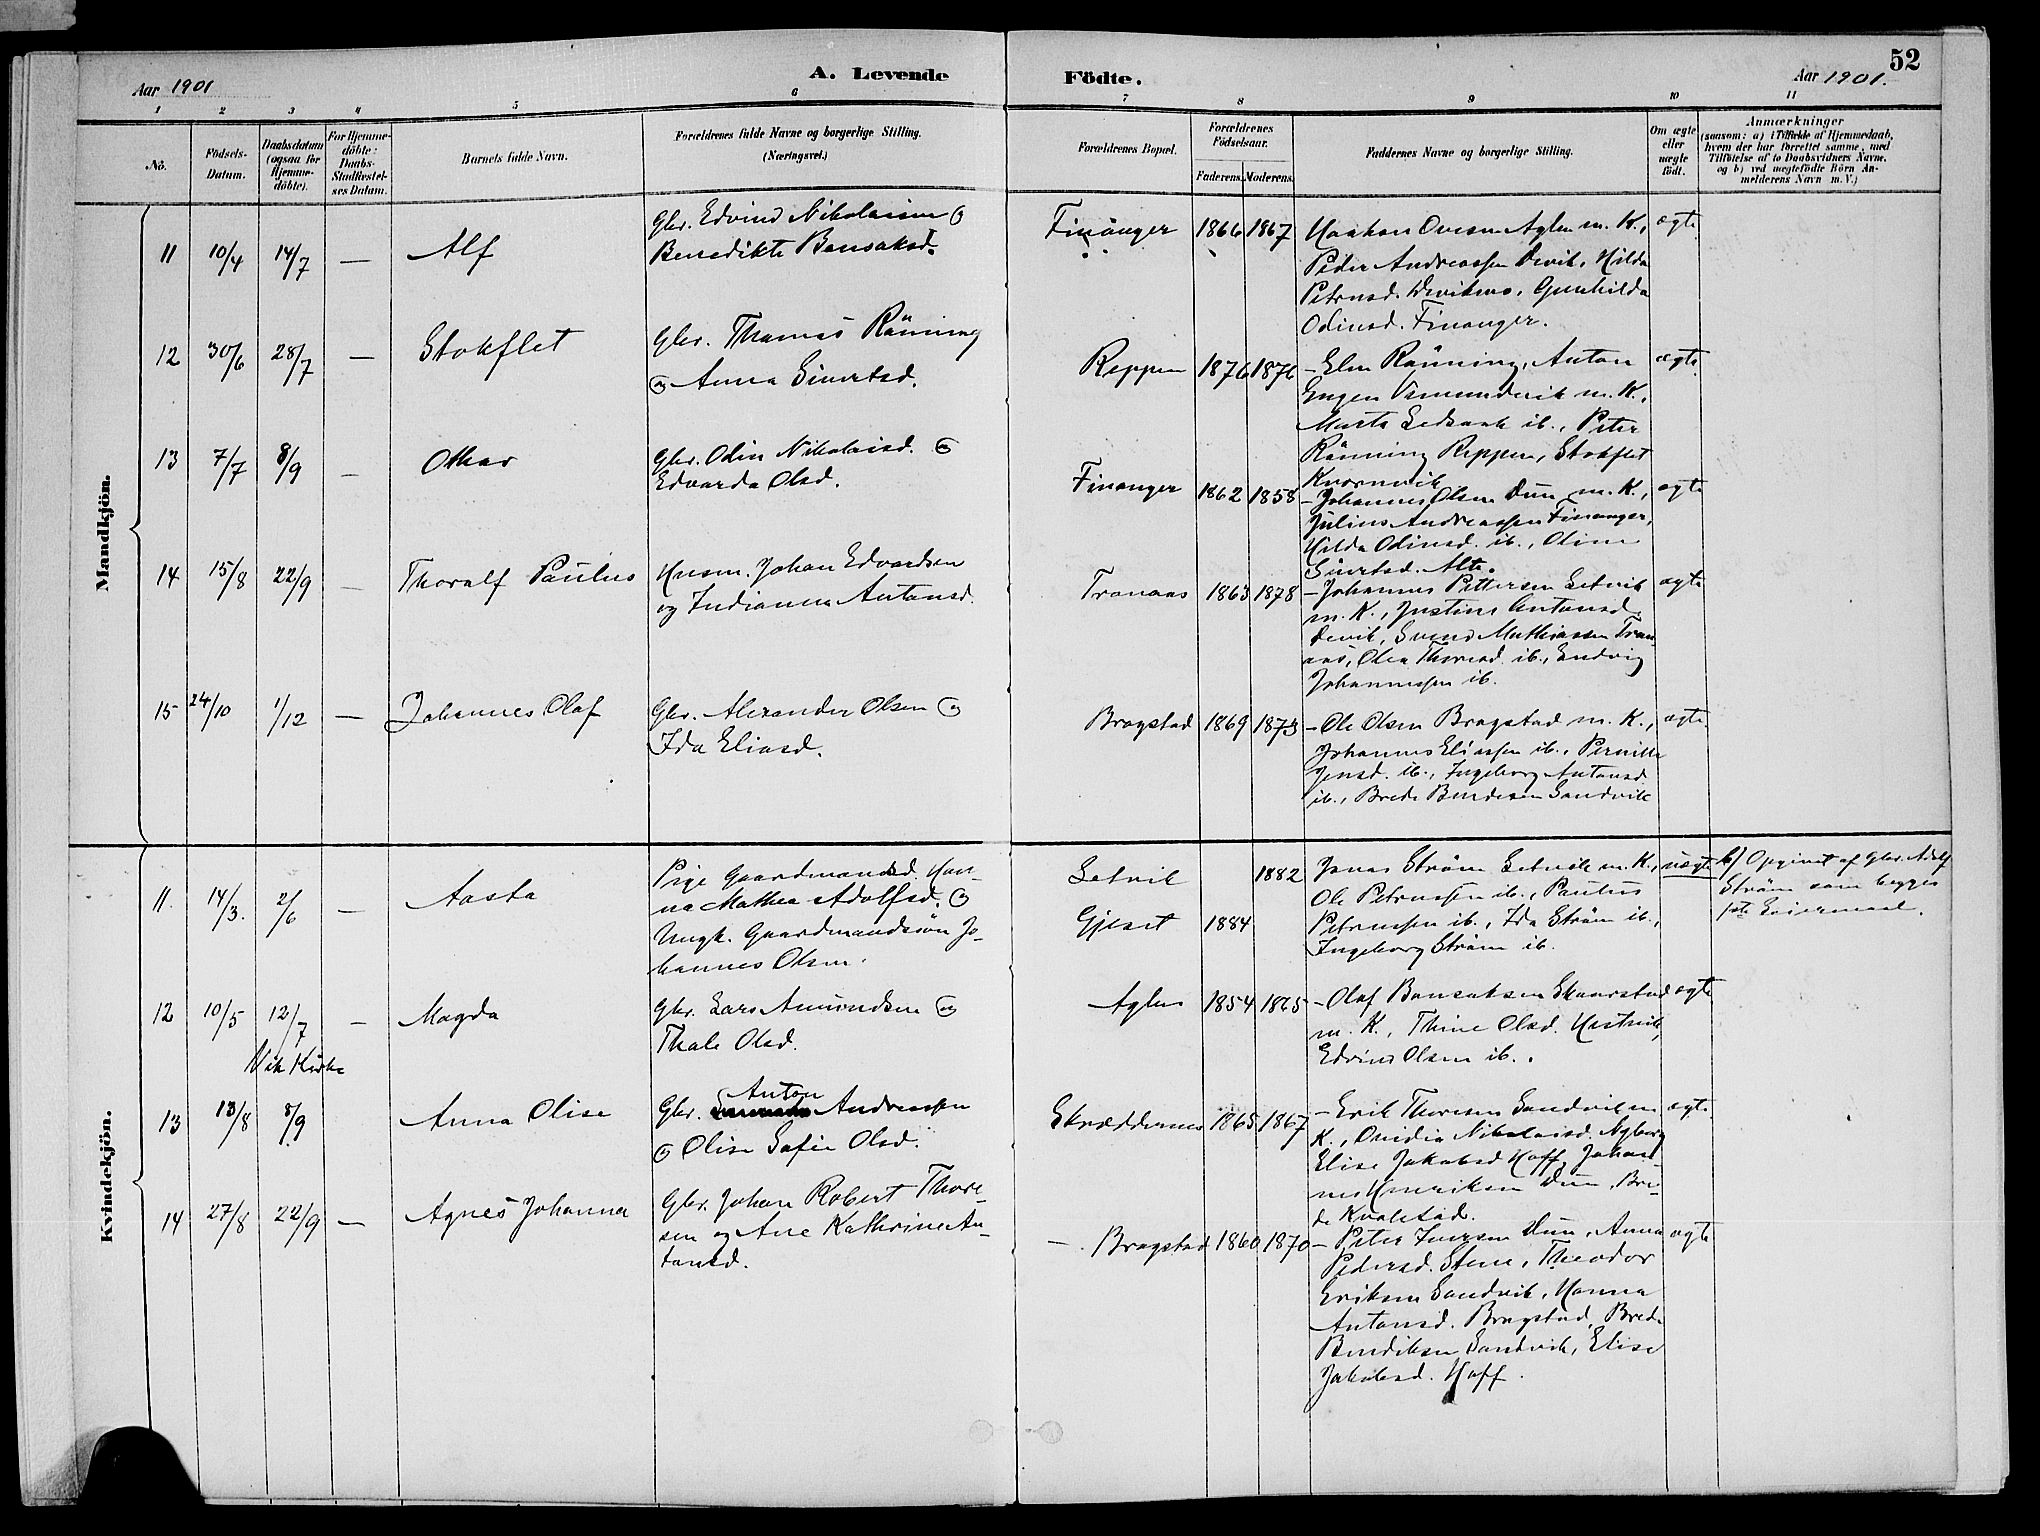 52
Aar 1901
A. Levende
Födte.
Aar 1901.
1 2 3 4 5 6 7 8 9 10 11
No.
Födsels-
Datum.
Daabsdatum
(ogsaa for
Hjemme-
döbte).
For Hjemme-
döbte:
Daabs-
Stadfæstel-
ses Datum.
Barnets fulde Navn.
Forældrenes fulde Navne og borgerlige Stilling.
(Næringsvei.)
Forældrenes Bopæl.
Forældrenes
Födselsaar.
Faderens. Moderens.
Faddernes Navne og borgerlige Stilling.
Om ægte
eller
uægte
födt.
Anmærkninger
(saasom: a) i Tilfælde af Hjemmedaab,
hvem der har forrettet samme, med
Tilföielse af to Daabsvidners Navne,
og b) ved uægtefödte Börn An-
melderens Navn m. V.)
Mandkjön.
11 10/4 14/7 — Alf
Gbr. Edvind Nikolaisen og
Benedikte Bensaksd.
Finanger 1866 1867
Haakon Ovesen Aglen m. K.,
Peder Andreassen Devik, Hilda
Petrusd. Devikmo, Gunhilda
Odinsd. Finanger.
ægte
12 30/6 28/7 — Stokflet
Gbr. Thomas Rönning
og Anna Sivertsd.
Reppen 1876 1876
— Elen Rönning, Anton
Eugen Vemundvik m. K.,
Marta Ledsaak ib., Peter
Rönning Reppen, Stokflet
Kvernvik
ægte
13 7/7 8/9 — Othar
Gbr. Odin Nikolaisd. og
Edvarda Olsd.
Finanger 1862 1858
— Johannes Olsen Dun m. K.,
Julius Andreassen Finanger,
Hilda Odinsd. ib., Oline
Sivertsd. Alte.
ægte
14 15/8 22/9 — Thoralf Paulus
Husm. Johan Edvardsen
og Indianna Antonsd.
Tranaas 1863 1878
— Johannes Pettersen Setvik
m. K., Justine Antonsd.
Devik, Svend Mathiassen Tran-
aas, Olea Thoresd. ib., Ludvig
Johannessen ib.
ægte
15 24/10 1/12 — Johannes Olaf
Gbr. Alexander Olsen og
Ida Eliasd.
Bragstad 1869 1873
— Ole Olsen Bragstad m. K.,
Johannes Eliassen ib., Pernille
Jensd. ib., Ingeborg Antonsd
ib., Brede Bendiksen Sandvik
ægte
Kvindekjön.
11. 14/3. 2/6 — Aasta
Pige Gaardmandsd. Han-
na Mathea Adolfsd. og
Ungk. Gaardmandssön Jo-
hannes Olsen.
Setvik 1882
Gjeset 1884
Jonas Ström Setvik m. K.,
Ole Petrussen ib., Paulus
Petrussen ib., Ida Ström ib.,
Ingeborg Ström ib.
uægte
b) Opgivet af Gbr. Adolf
Ström som begges
1ste Leiermaal.
12 10/5 12/7 — Magda
Vik Kirke
Gbr. Lars Amundsen og
Thale Olsd.
Aglen 1854 1865
— Olaf Bensaksen Skaarstad
m. K., Thine Olsd. Hestvik,
Edvind Olsen ib.
ægte
13 13/8 8/9 Anna Olise
Anton
Gbr. Andreassen
og Olise Sofie Olsd.
Skræddernes 1865 1867
— Erik Thoresen Sandvik m
K., Ovidia Nikolaisd. Nyborg
Elise Jakobsd Hoff, Johan-
nes Henriksen Dun, Bre-
de Kvalstad.
ægte
14 27/8 22/9 — Agnes Johanna
Gbr. Johan Robert Thore-
sen og Ane Kathrine An-
tonsd.
— Bragstad 1860 1870
— Peter Iversen Dun, Anna
Pedersd. Stene, Theodor
Eriksen Sandvik, Hanna
Antonsd. Bragstad, Brede
Bendiksen Sandvik, Elise
Jakobsd. Hoff.
ægte